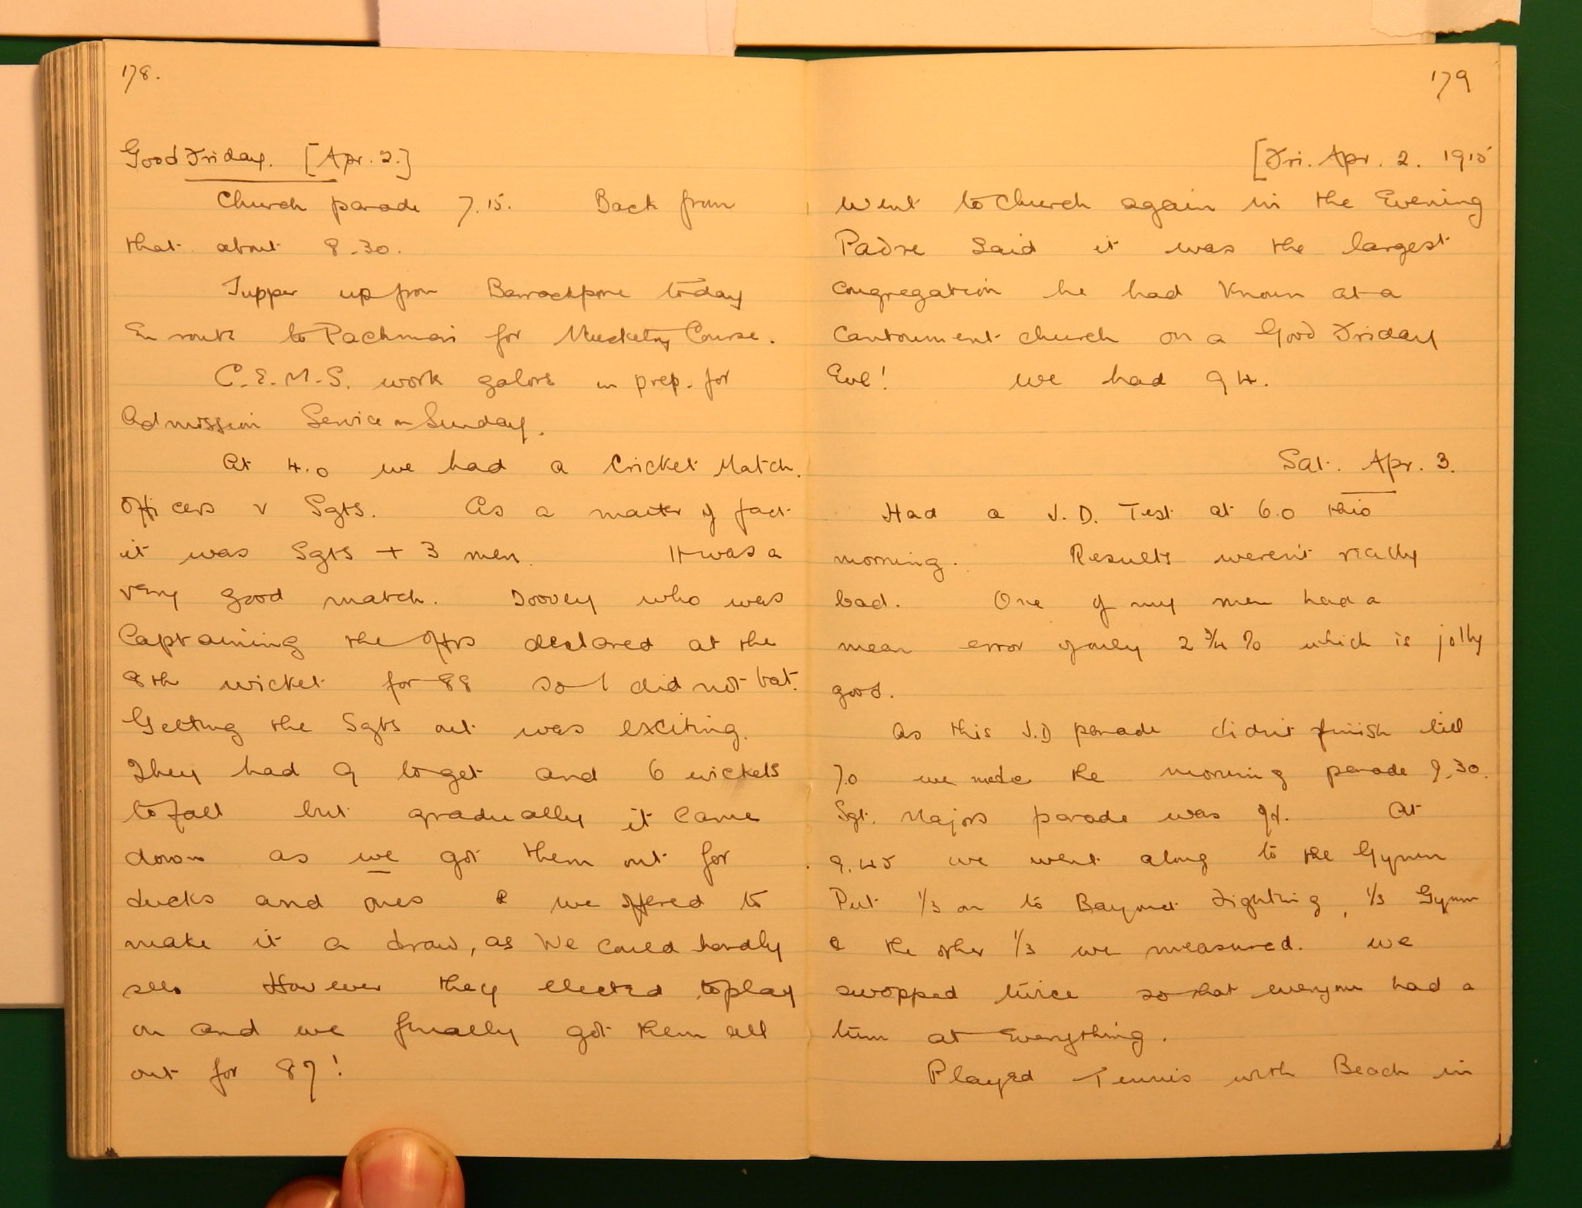 178.
Good Friday. [Apr. 2.]
Church parade 7.15. Back from
that about 8.30.
Tupper up from Barrackpore today
En route to Pachmari for Musketry Course.
C.E.M.S. work galore in prep. for
Admission Service on Sunday.
At 4.0 we had a Cricket Match.
Officers v Sgts. As a matter of fact
it was Sgts + 3 men. It was a
very good match. Toovey who was
Captaining the Offrs declared at the
8th wicket for 88 so I did not bat.
Getting the Sgts out was exciting.
They had 9 to get and 6 wickets
to fall but gradually it came
down as we got them out for
ducks and ones & we offered to
make it a draw, as we could hardly
see. However they elected to play
on and we finally got them all
out for 87!
179
[Fri. Apr. 2. 1915
went to church again in the Evening
Padre said it was the largest
congregation he had known at a
cantonment church on a Good Friday
Eve! We had 94.
Sat. Apr. 3.
Had a J.D. Test at 6.0 this
morning. Results weren't really
bad. One of my men had a
mean error of only 2 3/4 % which is jolly
good.
As this J.D parade didn't finish till
7.0 we made the morning parade 9.30.
Sgt. Majors parade was off. At
9.45 we went along to the Gymn
Put 1/3 on to Bayonet Fighting, 1/3 Gymn
& the other 1/3 we measured. We
swopped twice so that everyone had a
turn at everything.
Played Tennis with Beach in